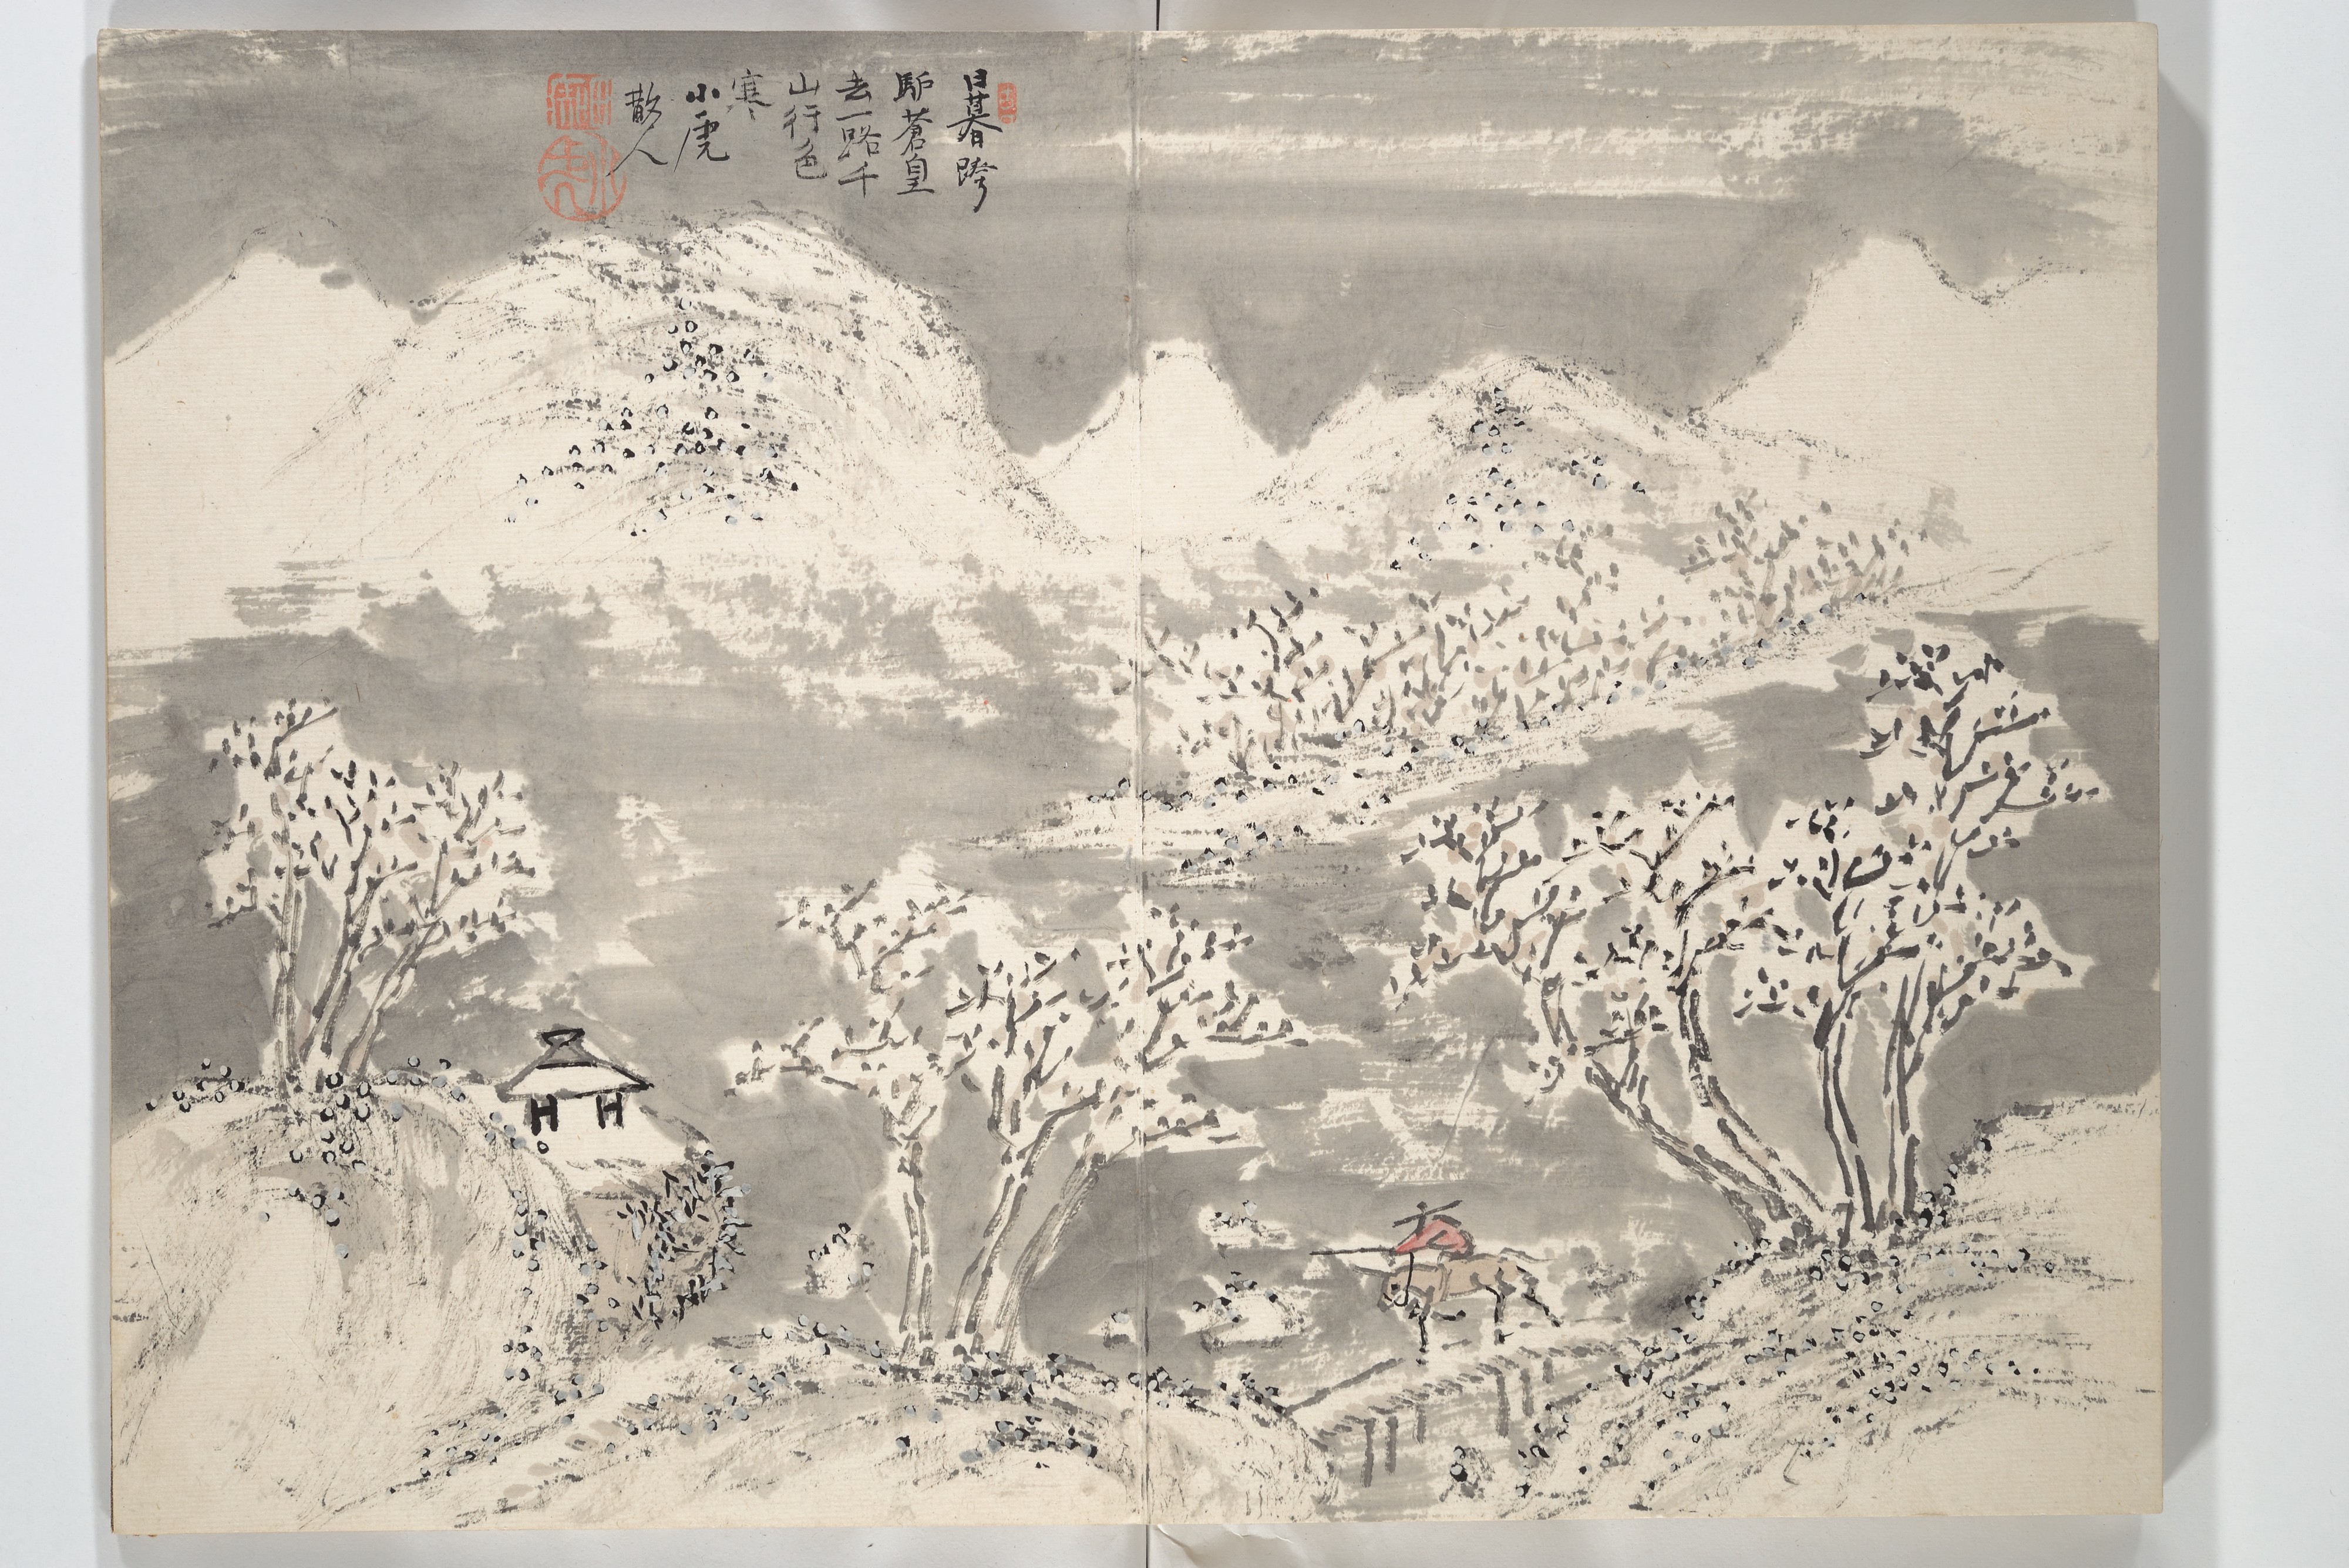 日暮跨
馿蒼皇
去一路千
山行色
寒
小虎
散人